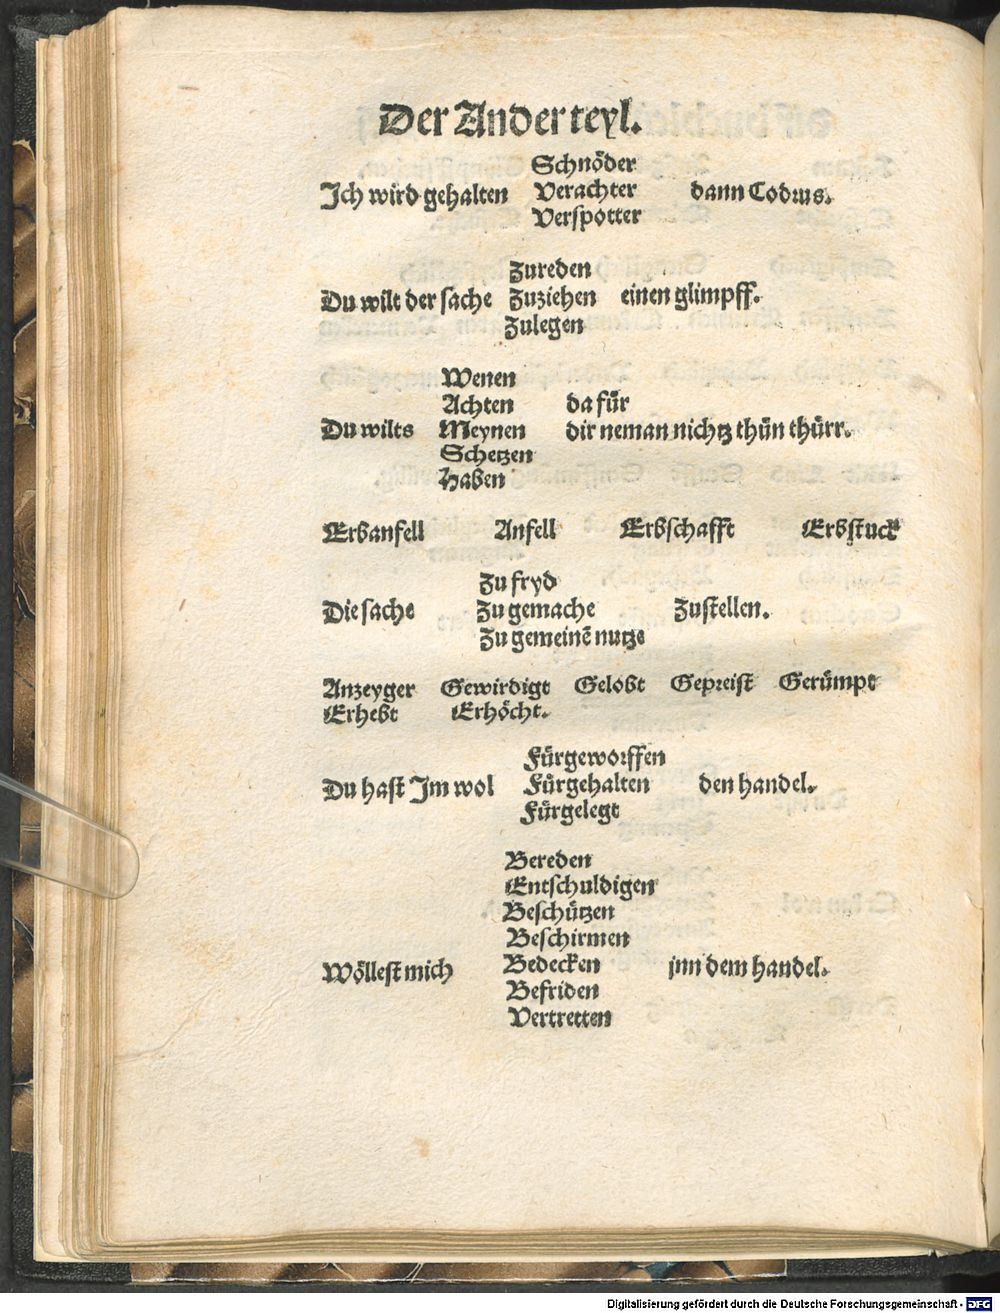 Der Ander teyl.
Schnöder
Ich wird gehalten Verachter dann Codrus.
Verspotter
Zureden
Du wilt der sache Zuziehen einen glimpff.
Zulegen
Wenen
Achten da für
Du wilts Meynen dir neman nichtz thün thürr.
Schetzen
Haben
Erbanfell Anfell Erbschafft Erbstuck
Zu fryd
Die sache Zu gemache Zustellen.
Zu gemeinē nutze
Anzeyger Gewirdigt Gelobt Gepreist Gerümpt
Erhebt Erhöcht.
Fürgeworffen
Du hast Jm wol Fürgehalten den handel.
Fürgelegt
Bereden
Entschuldigen
Beschützen
Beschirmen
Wöllest mich Bedecken jnn dem handel.
Befriden
Vertretten
Digitalisierung gefördert durch die Deutsche Forschungsgemeinschaft - DFG